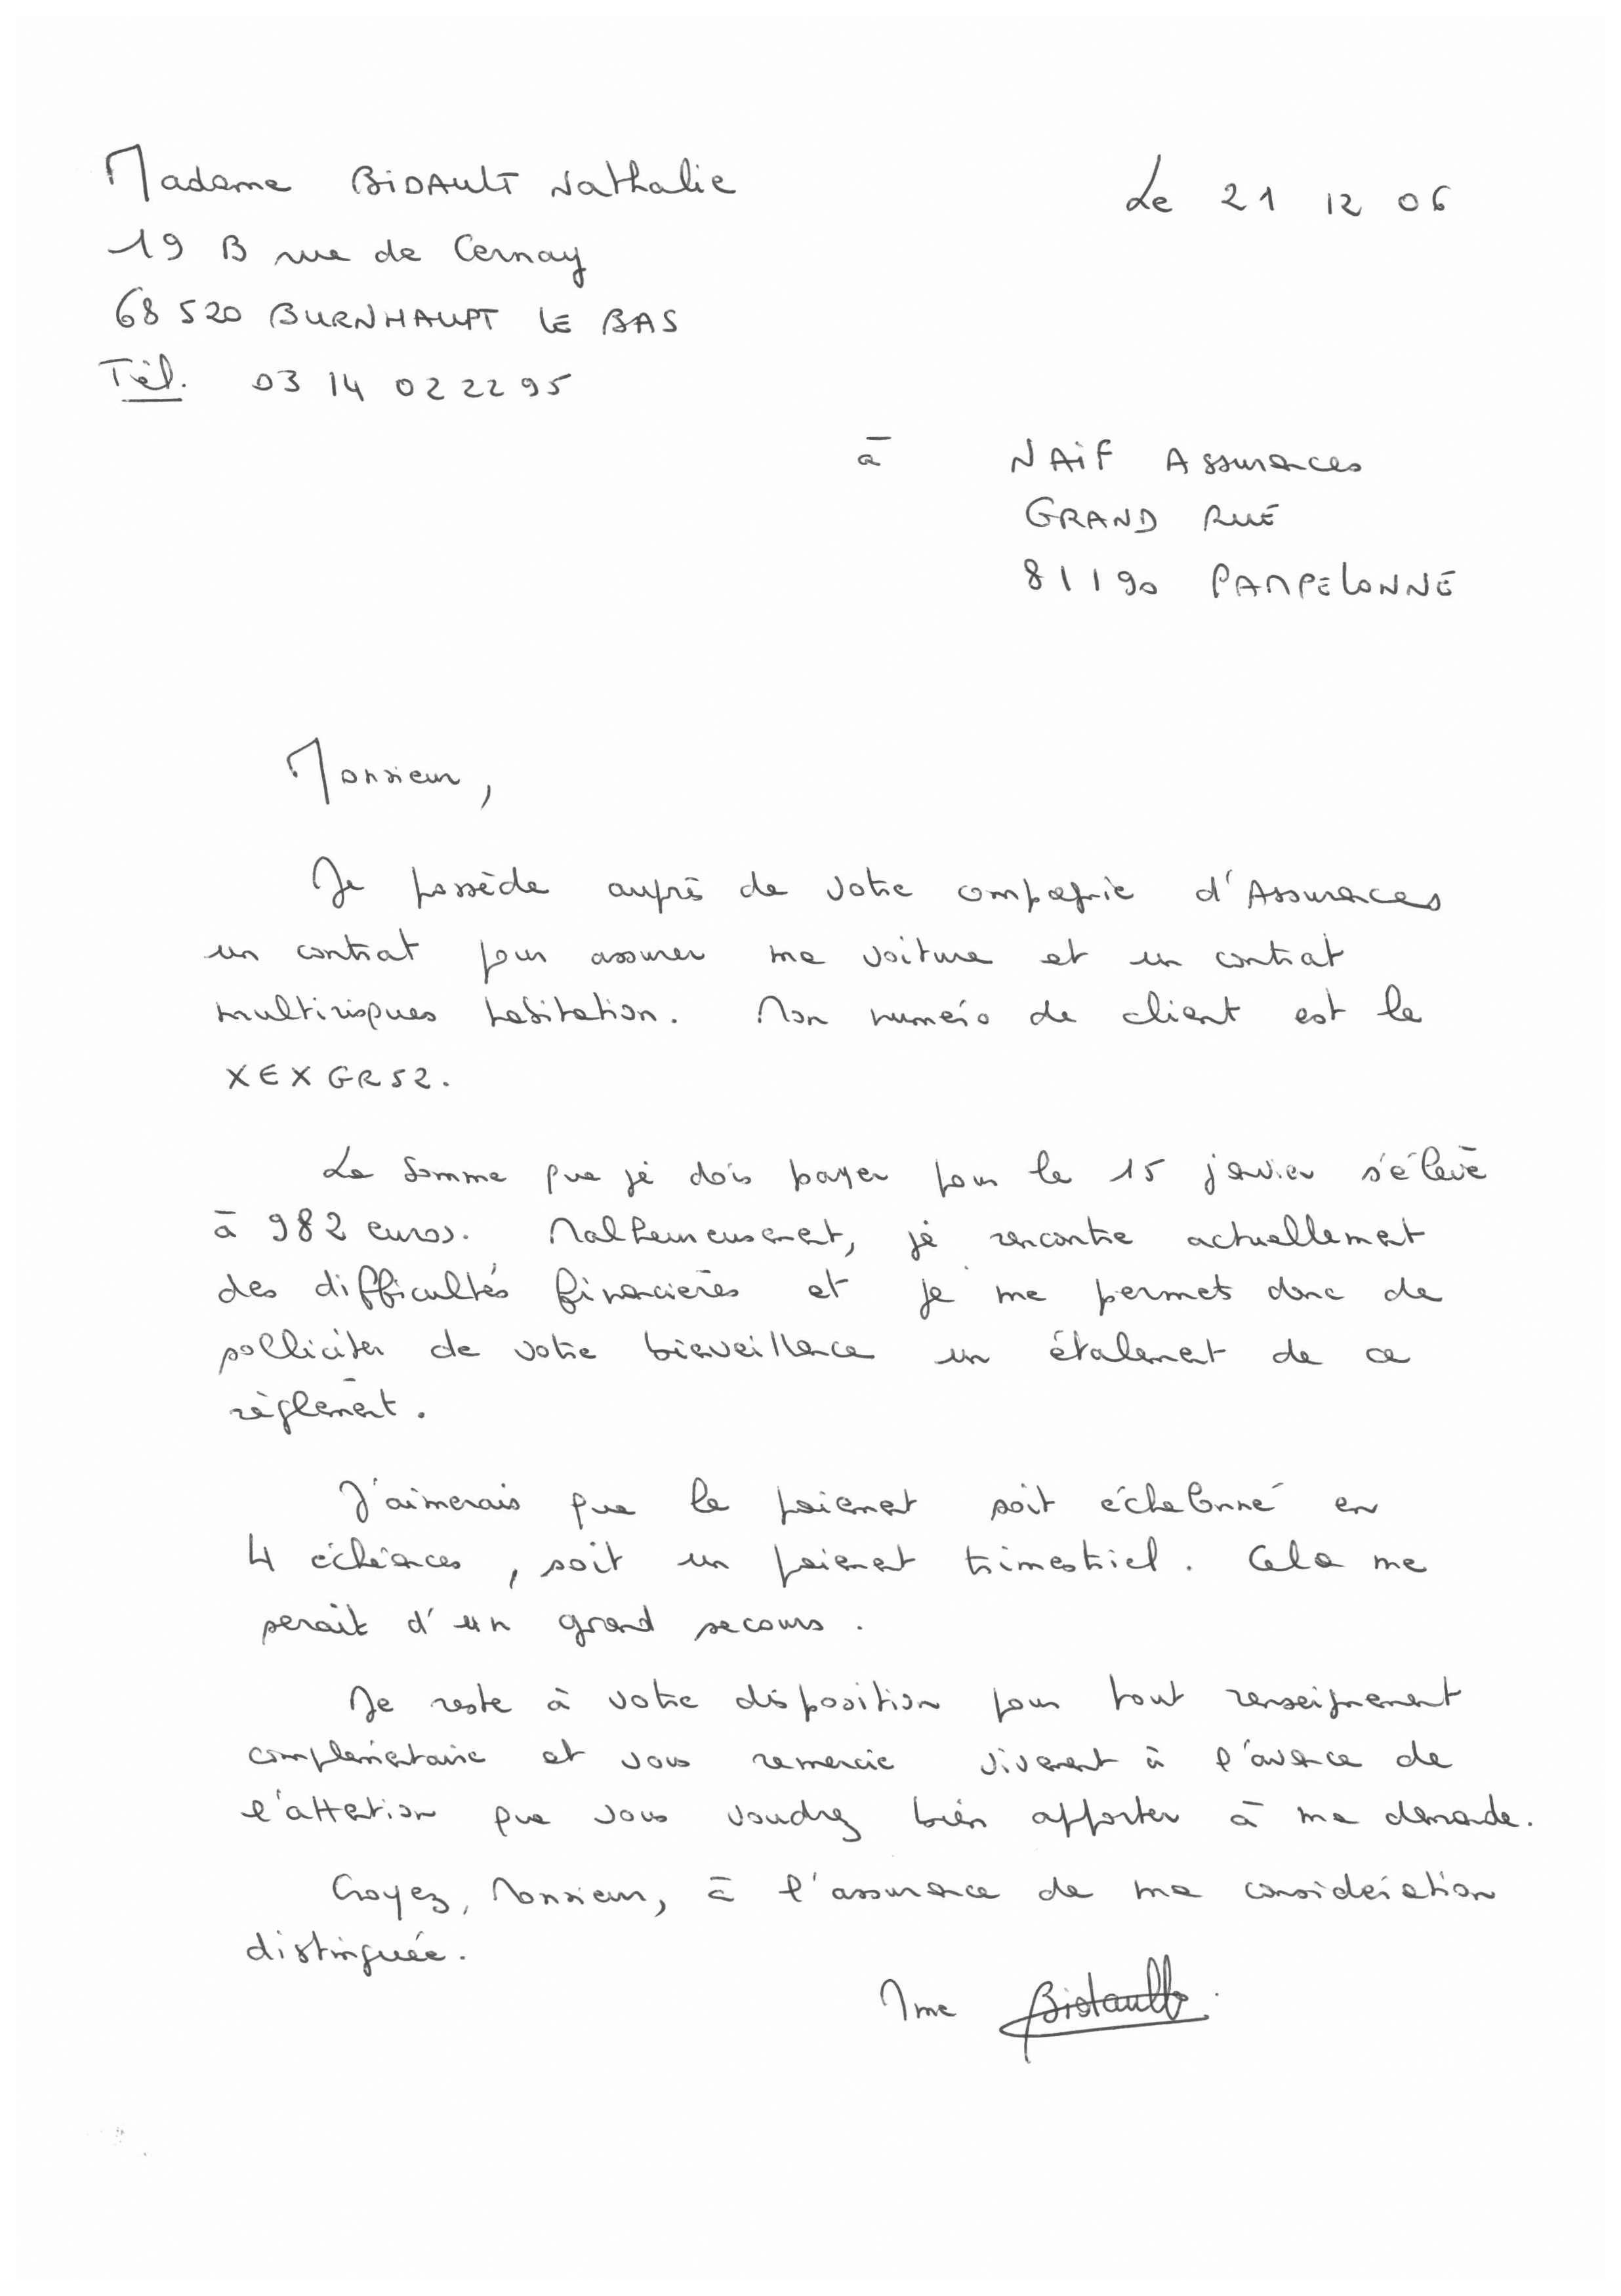 Madame BIDAULT Nathalie
Le 21 12 06
19 B rue de Cernay
68 520 BURNHAUPT LE BAS
Tél. 03 14 02 22 95
à NAIF Assurances
GRAND RUE
81190 PAMPELONNE
Monsieur,
Je possède auprès de votre compagnie d'Assurances
un contrat pour assurer ma voiture et un contrat
multirisques habitation. Mon numéro de client est le
XEXGR52.
La somme que je dois payer pour le 15 janvier s'élève
à 982 euros. Malheureusement, je rencontre actuellement
des difficultés financières et je me permets donc de
solliciter de votre bienveillance un étalement de ce
règlement.
J'aimerais que le paiement soit échelonné en
4 échéances, soit un paiement trimestriel. Cela me
serait d'un grand secours.
Je reste à votre disposition pour tout renseignement
complémentaire et vous remercie vivement à l'avance de
l'attention que vous voudrez bien apporter à ma demande.
Croyez, Monsieur, à l'assurance de ma considération
distinguée.
Mme Bidault